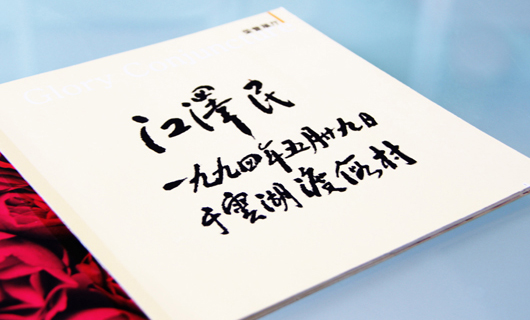 Glory
江澤民
一九九四年五月廿九日
于雲湖渡假村